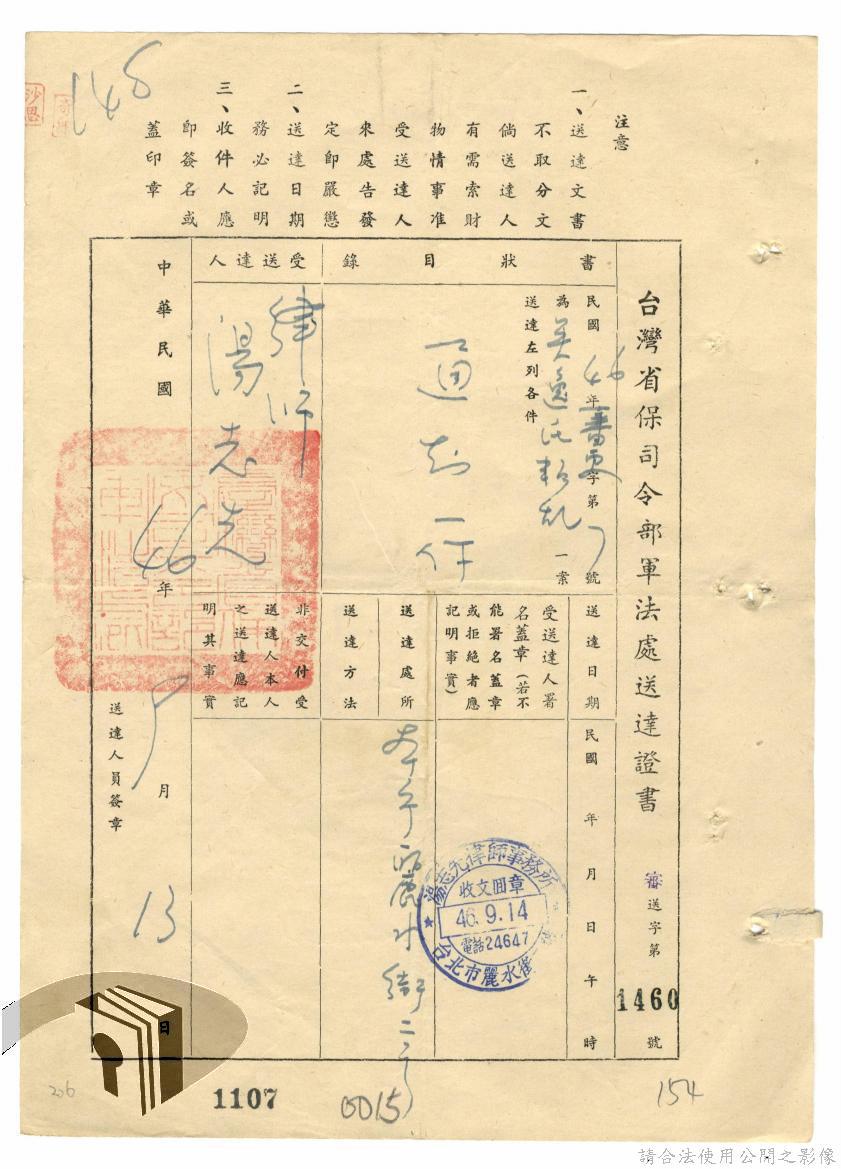 148
注意
一、送達文書
不取分文
倘送達人
有需索財
物情事准
受送達人
來處告發
定即嚴懲
二、送達日期
務必記明
三、收件人應
即簽名或
蓋印章
台灣省保司令部軍法處送達證書
審送字第1460號
書狀目錄
民國46年審更字第7號
為吳逸民叛乱一案
送達左列各件
通知一件
受送達人
律師
湯志先
送達日期
民國 年 月 日 午 時
受送達人署
名蓋章(若不
能署名蓋章
或拒絕者應
記明事實)
湯志先律師事務所
收文回章
46.9.14
電話24647
台北市麗水街
送達處所
本市麗水街二号
送達方法
非交付受
送達人本人
之送達應記
明其事實
中華民國46年9月13日
送達人員簽章
206
1107
0015
154
請合法使用公開之影像